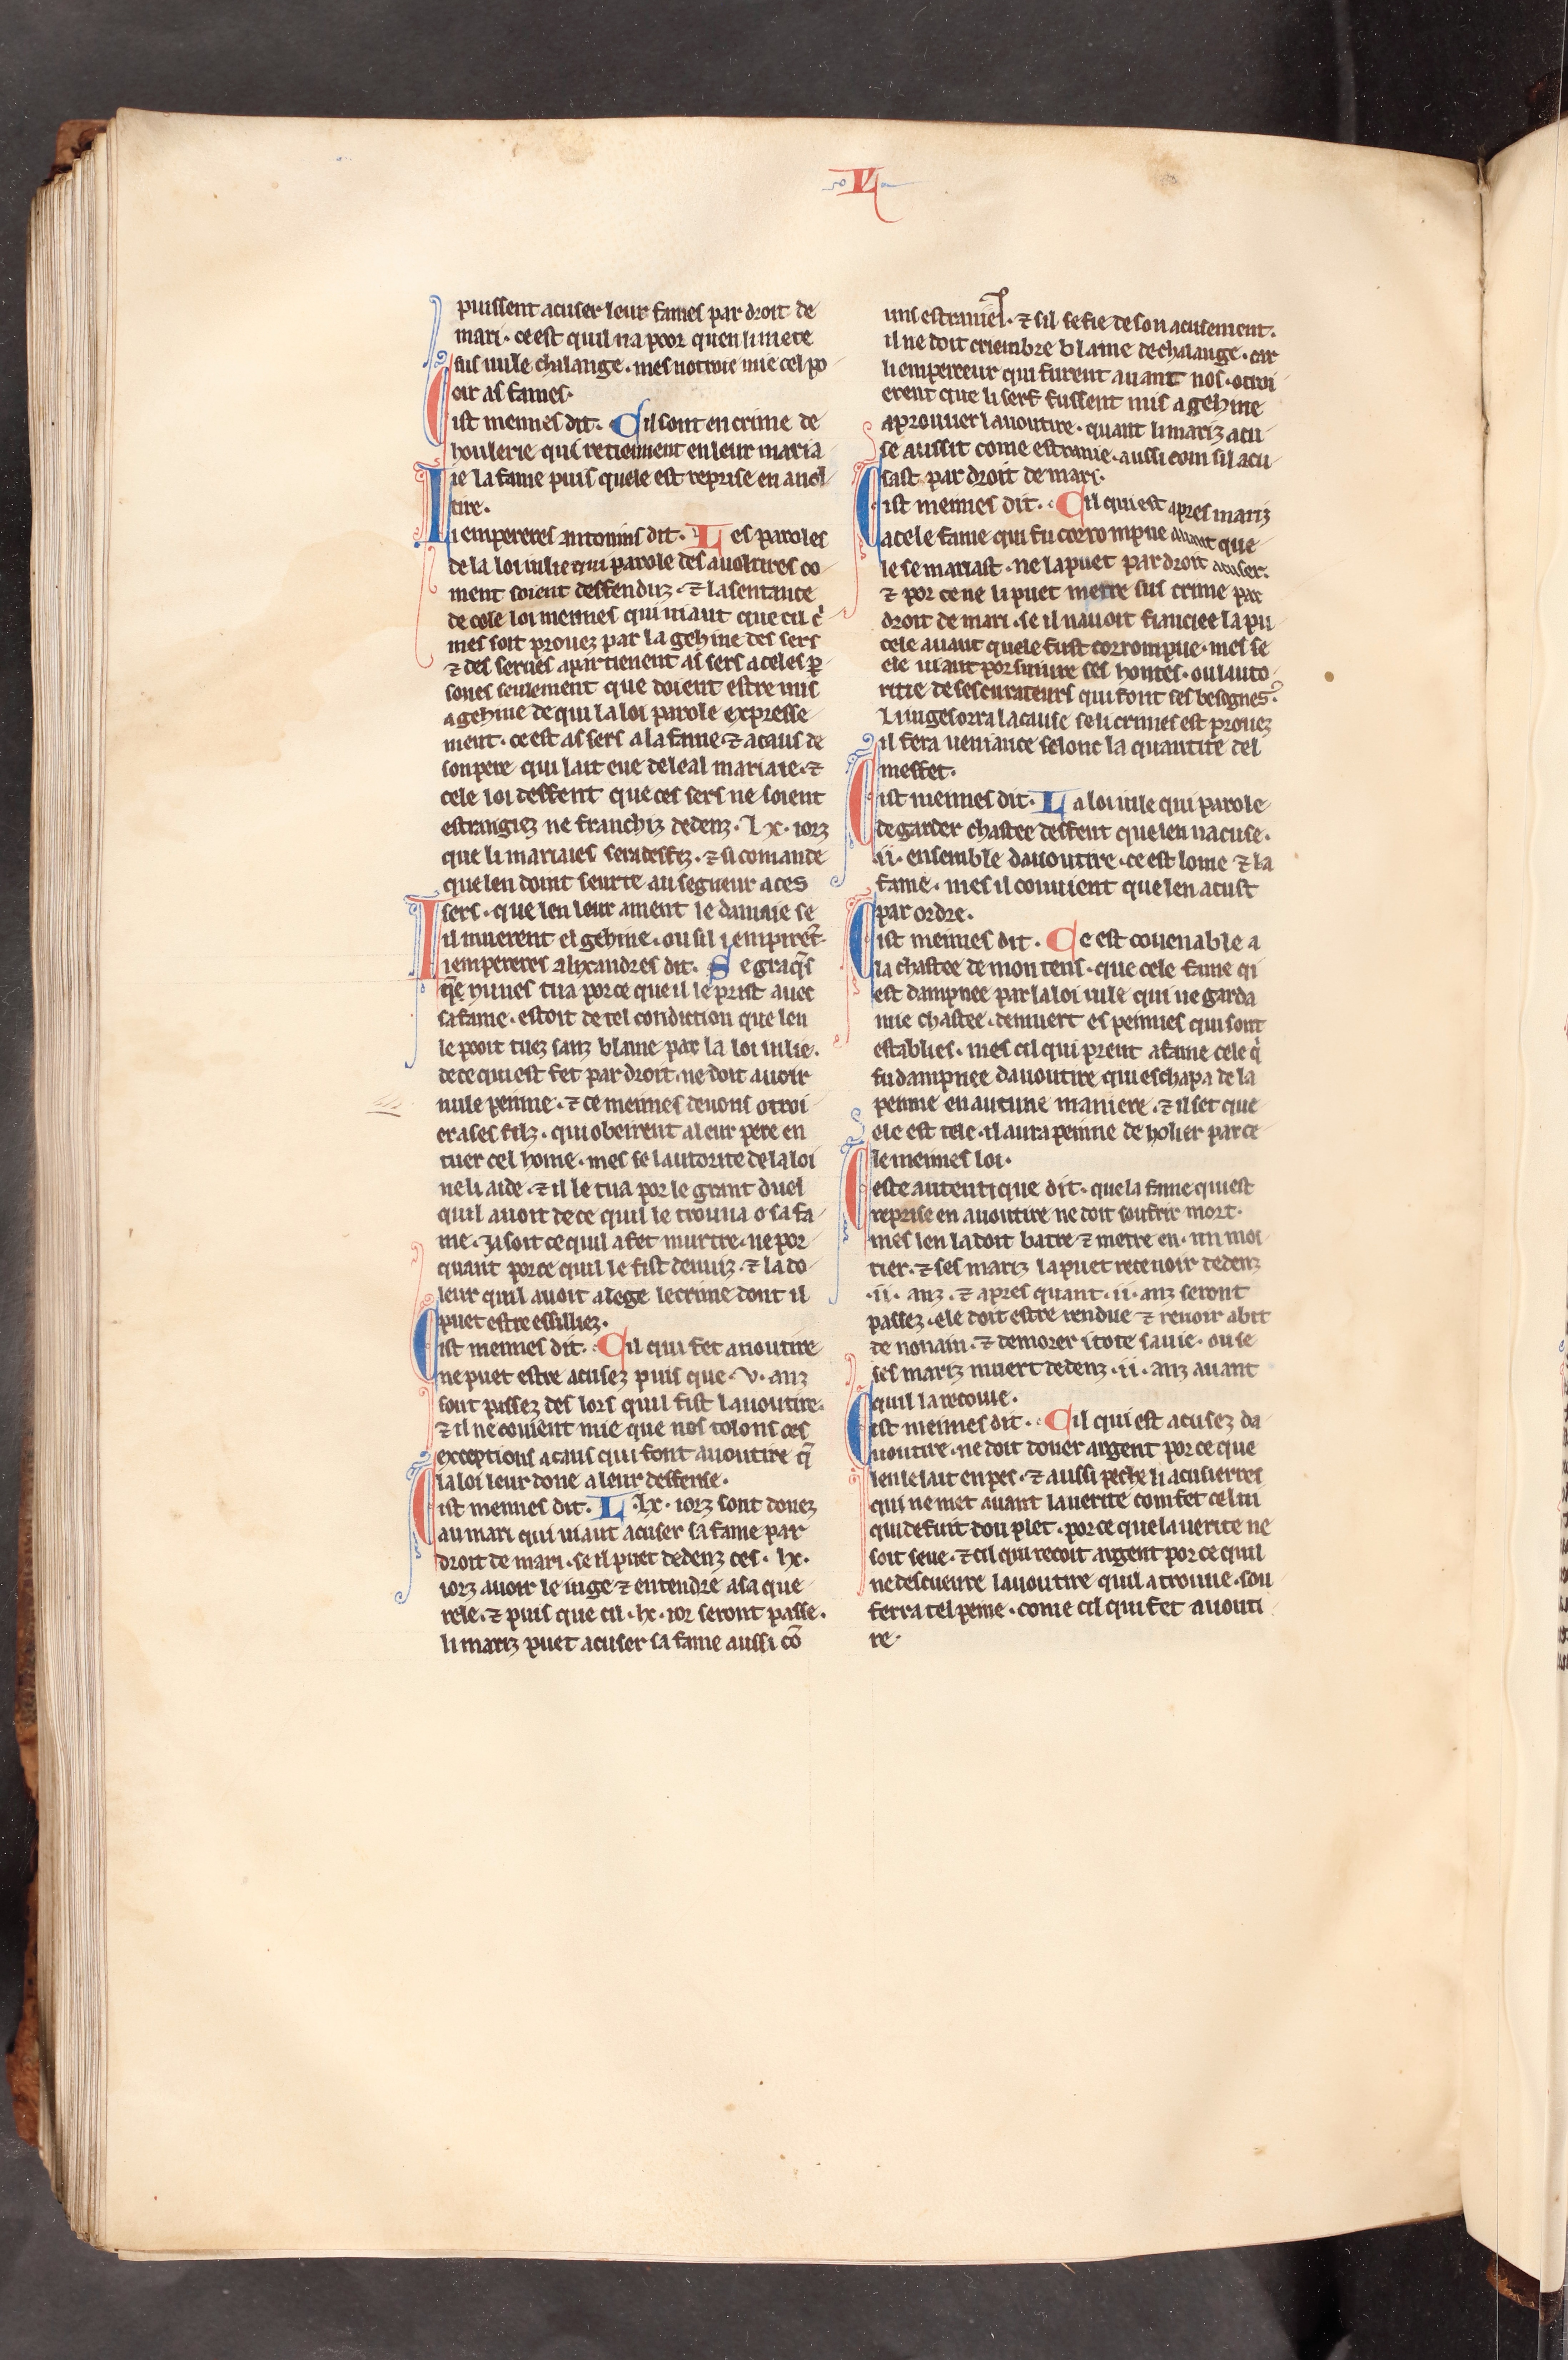 VI
puissent acuser leur fames par droit de
mari · ce est quil na poor quen li mete
sus nule chalange · mes notroie mie cel po
oir as fames ·
Cist meimes dit · Cil sont en crime de
houlerie qui retienent en leur maria
ie la fame puis quele est reprise en auol
tire ·
Li empereres antonins dit · Les paroles
de la loi iulie qui parole des auoltires co
ment soient deffenduz · ⁊ la sentance
de cele loi meimes qui uiaut que cil cͥ
mes soit prouez par la gehine des sers
⁊ des serues apartienent as sers a celes ꝑ
sones seulement que doient estre mis
a gehine de qui la loi parole expresse
ment · ce est as sers a la fame · ⁊ a caus de
son pere qui lait eue de leal mariaie · ⁊
cele loi deffent que ces sers ne soient
estrangiez ne franchiz dedenz · lx · iorz
que li mariaies sera desfez · ⁊ si comande
que len doint seurte au segneur a ces
sers · que len leur ament le damaie se
il muerent el gehine · ou sil i empirēt ·
Li empereres alixandres dit · Se gracq̄s
q̄ nunes tua por ce que il le prist auec
sa fame · estoit de tel condicion que len
le pooit tuez sanz blame par la loi iulie ·
de ce qui est fet par droit · ne doit auoir
nule peinne · ⁊ ce meimes deuons otroi
er a ses filz · qui obeirent a leur pere en
tuer cel home · mes se lautorite de la loi
ne li aide · ⁊ il le tua por le grant duel
quil auoit de ce quil le trouua o sa fa
me · ia soit ce quil a fet murtre · ne por
quant por ce quil le fist de nuiz · ⁊ la do
leur quil auoit alege le crime dont il
puet estre essilliez ·
Cist meimes dit · Cil qui fet auoutire
ne puet estre acusez puis que · v · anz
sont passez des lors quil fist lauoutire ·
⁊ il ne couient mie que nos tolons ces
exceptions a caus qui font auoutire q̄
la loi leur done a leur deffense ·
Cist meimes dit · L · lx · iorz sont donez
au mari qui uiaut acuser sa fame par
droit de mari · se il puet dedenz ces · lx ·
iorz auoir le iuge ⁊ entendre a sa que
rele · ⁊ puis que cil · lx · ior seront passe ·
li mariz puet acuser sa fame aussi cō
uns estranies · ⁊ sil se fie de son acusement ·
il ne doit criembre blame de chalange · car
li empereeur qui furent auant nos · otroi
erent que li serf fussent mis a gehine
a prouuer lauoutire · quant li mariz acu
se aussit come estranie · aussi com sil acu
sast par droit de mari ·
Cist meimes dit · Cil qui est apres mariz
a cele fame qui fu corrompue auant que
le se mariast · ne la puet par droit acuser ·
⁊ por ce ne li puet metre sus crime par
droit de mari · se il nauoit fianciee la pu
cele auant quele fust corrompue · mes se
ele uiaut porsuiure ses hontes · ou lauto
ritie de ses curateurs qui font ses besognes ·
Li iuges orra la cause se li crimes est prouez
il fera ueniance selonc la quantite del
meffet ·
Cist meimes dit · La loi iulie qui parole
de garder chastee deffent que len nacuse ·
ii · ensemble dauoutire · ce est lome ⁊ la
fame · mes il couuient que len acust
par ordre ·
Cist meimes dit · Ce est couenable a
la chastee de mon tens · que cele fame qi
est dampnee par la loi iulie qui ne garda
mie chastee · demuert es peinnes qui sont
establies · mes cil qui prent a fame cele qͥ
fu dampnee dauoutire qui eschapa de la
peinne en aucune maniere · ⁊ il set que
ele est tele · il aura peinne de holier par ce
le meimes loi ·
Ceste autentique dit · que la fame qui est
reprise en auoutire ne doit soufrir mort ·
mes len la doit batre ⁊ metre en · un moi
tier · ⁊ ses mariz la puet retenoir dedenz
· ii · anz · ⁊ apres quant · ii · anz seront
passez · ele doit estre rendue ⁊ reuoir abit
de nonain · ⁊ demorer i tote sa uie · ou se
ses mariz muert dedenz · ii · anz auant
quil la recoiue ·
Cist meimes dit · Cil qui est acusez da
uoutire · ne doit doner argent por ce que
len le lait en pes · ⁊ aussi peche li acusierres
qui ne met auant la uerite com fet celui
qui defuit dou plet · por ce que la uerite ne
soit seue · ⁊ cil qui recoit argent por ce quil
ne descueure lauoutire quil a trouue · sou
ferra tel peine · come cil qui fet auouti
re ·